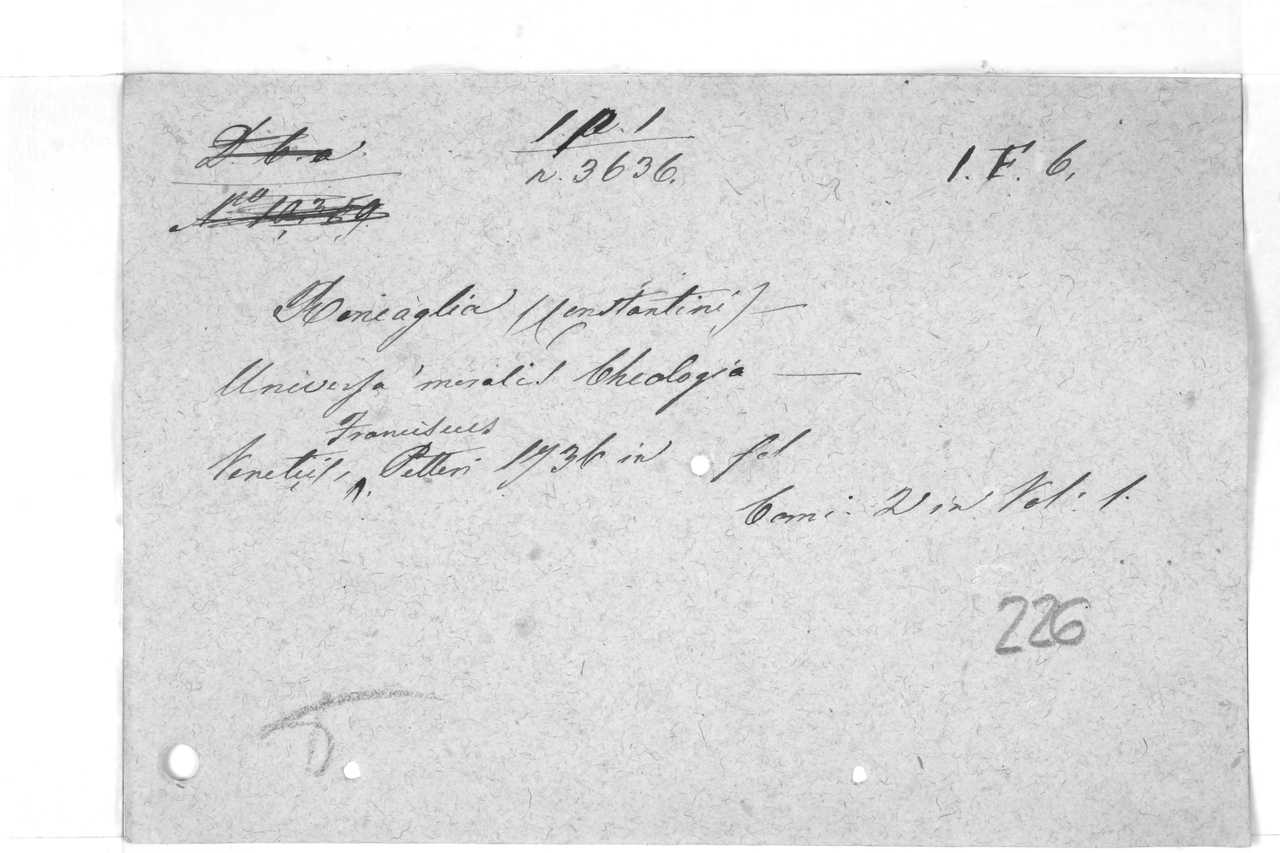 D. b. a.
Nro 10,359.
1 p. 1
n. 3636.
1. F. 6.
Roncaglia (Constantini)—
Universa moralis Theologia —
Franciscus
Venetiis, Pitteri 1736 in fol
Tomi. 2 in Vol: 1.
226